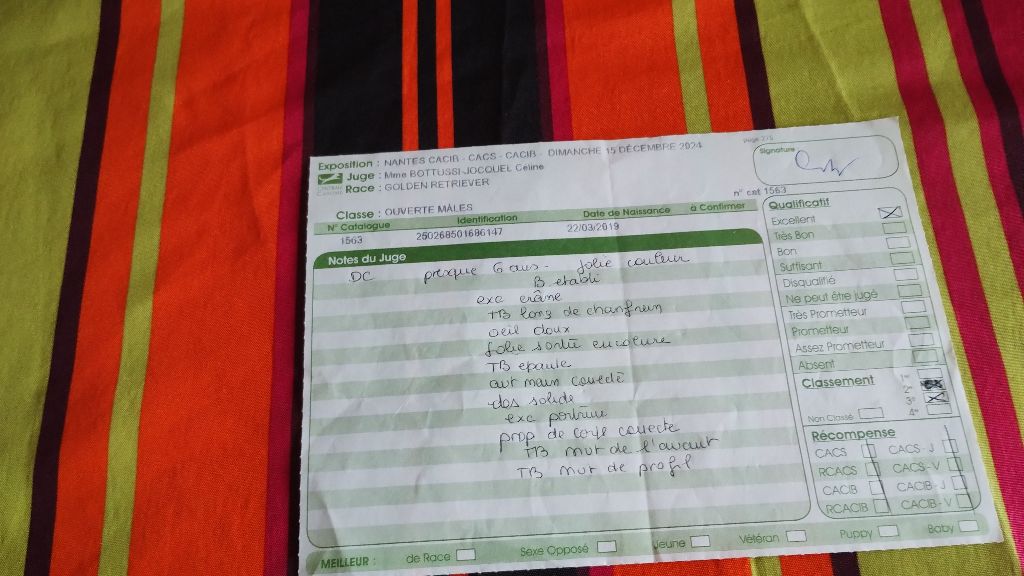 page 275
Exposition : NANTES CACIB - CACS - CACIB - DIMANCHE 15 DÉCEMBRE 2024
Juge : Mme BOTTUSSI JOCQUEL Céline
Race : GOLDEN RETRIEVER
Signature
n° cat 1563
Classe : OUVERTE MÂLES
N° Catalogue Identification Date de Naissance à Confirmer
1563 250268501686147 22/03/2019
Notes du Juge
DC presque 6 ans - jolie couleur
B etabli
exc crâne
TB long de chanfrein
oeil doux
Jolie sortie encolure
TB epaule
avt main correcte
dos solide
exc poitrine
prop de corps correcte
TB mvt de l'avant
TB mvt de profil
Qualificatif
Excellent
Très Bon
Bon
Suffisant
Disqualifié
Ne peut être jugé
Très Prometteur
Prometteur
Assez Prometteur
Absent
Classement
1er
2e
3e
Non Classé 4e
Récompense
CACS CACS - J
RCACS CACS - V
CACIB CACIB - J
RCACIB CACIB - V
MEILLEUR : de Race Sexe Opposé Jeune Vétéran Puppy Baby